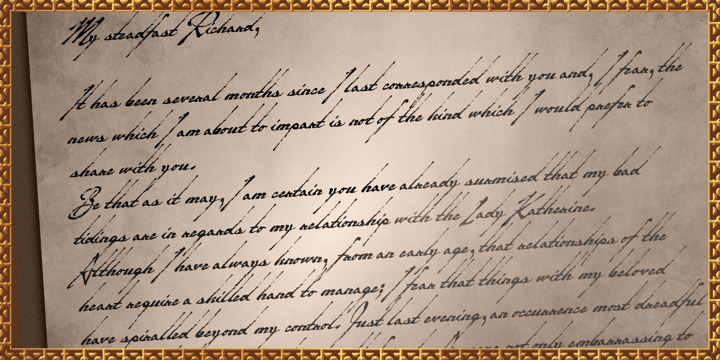 My steadfast Richard,
It has been several months since I last corresponded with you and, I fear, the
news which I am about to impart is not of the kind which I would prefer to
share with you.
Be that as it may, I am certain you have already surmised that my bad
tidings are in regards to my relationship with the Lady Katherine.
Although I have always known, from an early age, that relationships of the
heart require a skilled hand to manage; I fear that things with my beloved
have spiralled beyond my control. Just last evening, an occurrence most dreadful
not only embarrassing to